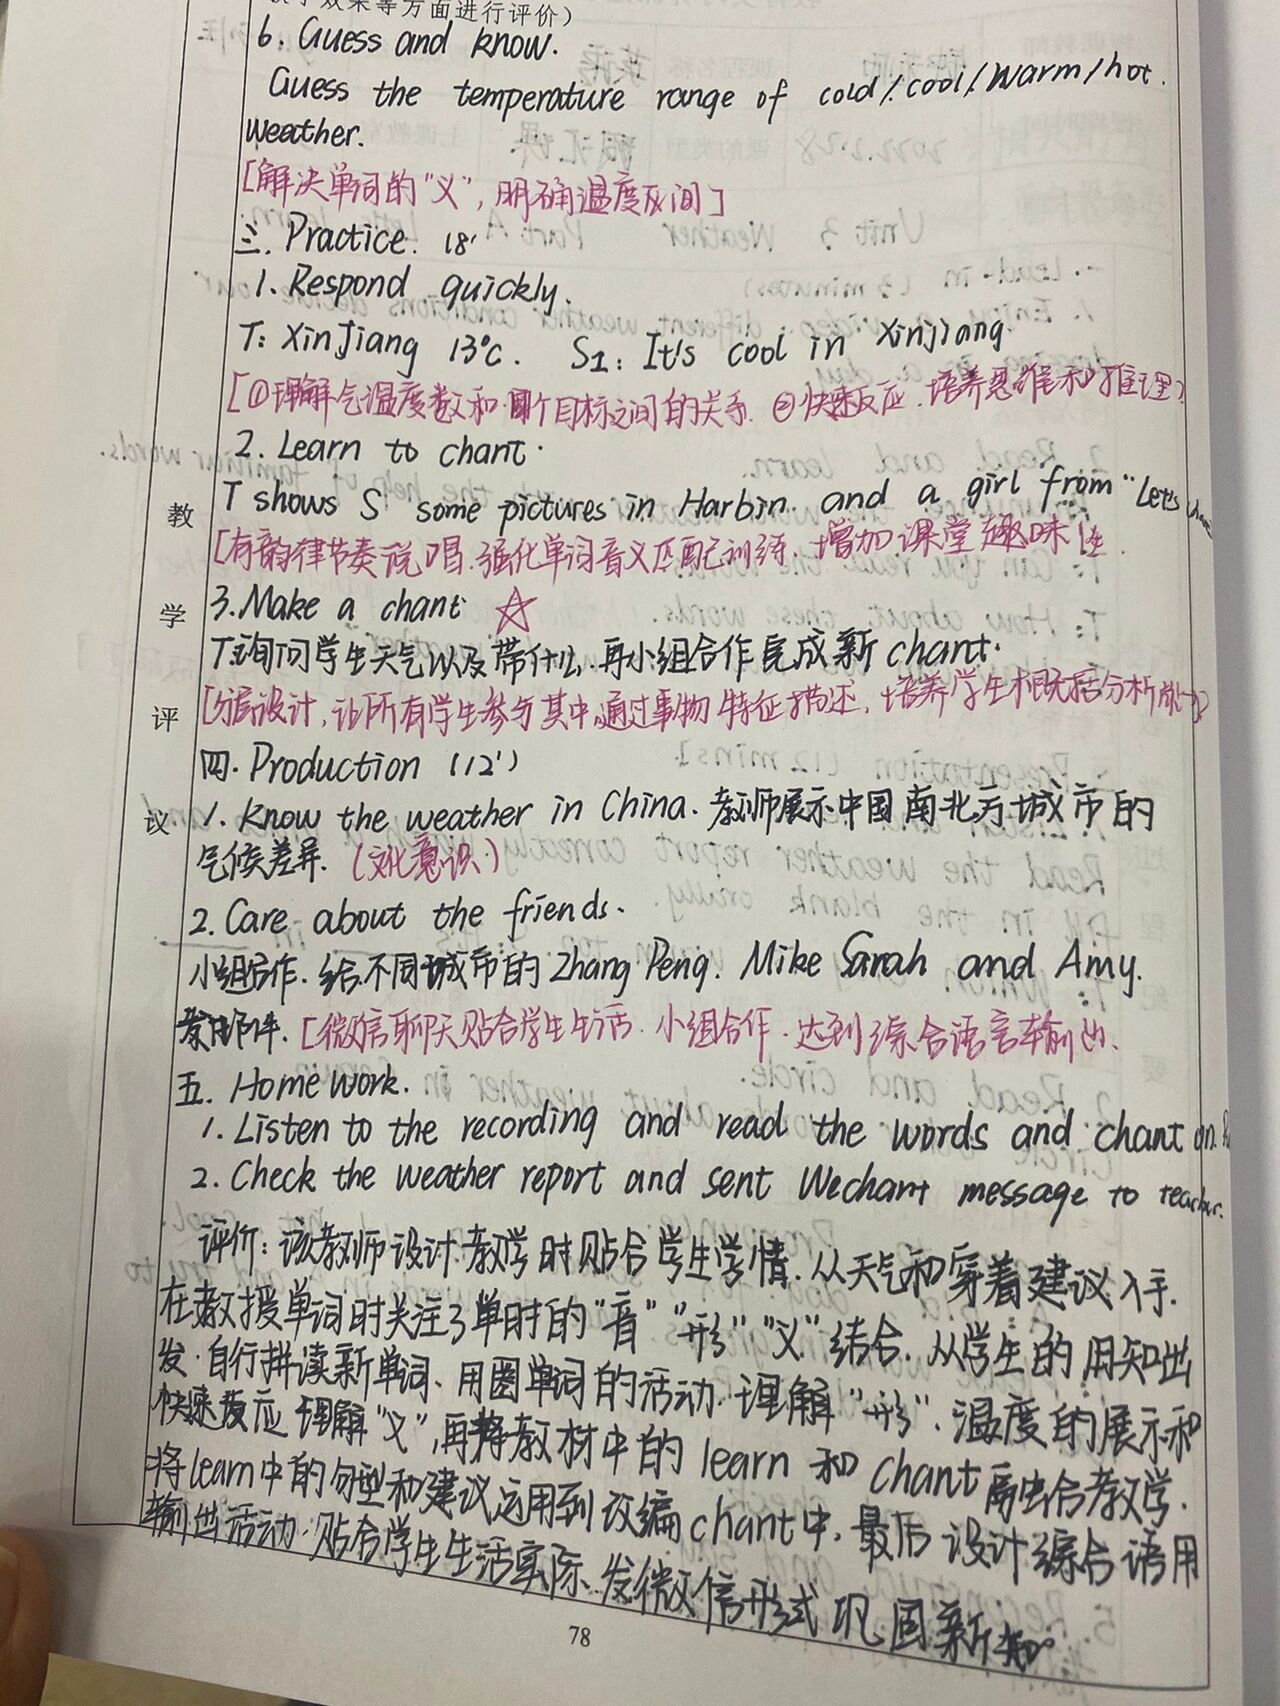 教学效果等方面进行评价）
6. Guess and know.
Guess the temperature range of cold/cool/warm/hot.
Weather.
[解决单词的"义"，明确温度区间]
三. Practice. 18'
1. Respond quickly.
T: XinJiang 13°C. S1: It's cool in Xinjiang.
[①理解气温度数和 目标之间的关系. ②快速反应. 培养思维和推理]
2. Learn to chant.
T shows S some pictures in Harbin and a girl from "Let's
[有韵律节奏说唱. 强化单词音义匹配训练. 增加课堂趣味性.
3. Make a chant ☆
T询问学生天气以及带什么. 再小组合作完成新chant.
设计, 让所有学生参与其中. 通过事物特征描述, 培养学生概括分析
四. Production (12')
1. Know the weather in China. 教师展示中国南北方城市的
气候差异. (文化意识.)
2. Care about the friends.
小组合作. 给不同城市的Zhang Peng. Mike Sarah and Amy.
发邮件. [微信聊天贴合学生生活. 小组合作. 达到综合语言输出.
五. Home work.
1. Listen to the recording and read the words and chant
2. Check the weather report and sent Wechart message to teacher.
评价: 该教师设计教学时贴合学生学情. 从天气和穿着建议入手.
在教授单词时关注了单时的"音""形""义"结合. 从学生的 知出
发. 自行拼读新单词. 用圈单词的活动. 理解"形". 温度的展示和
快速反应理解"义", 再将教材中的learn和chant融合教学.
将learn中的句型和建议运用到改编chant中. 最后设计综合语用
输出活动. 贴合学生生活实际. 发微信形式巩固新知.
教
学
评
议
78